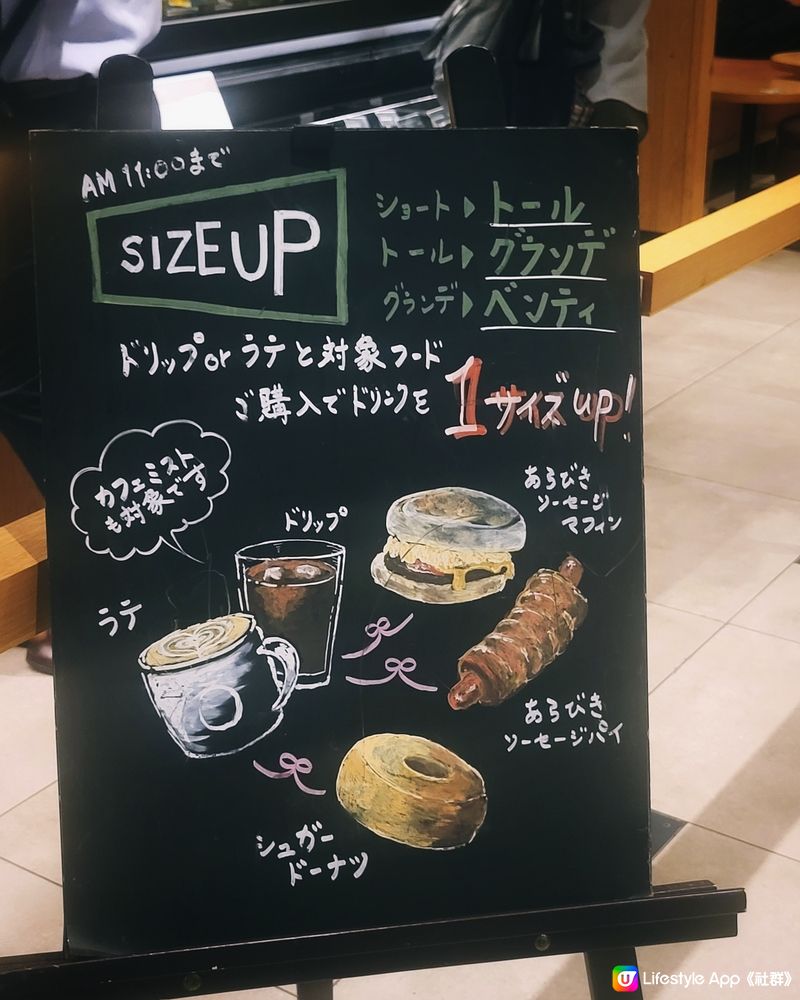 AM 11:00まで
SIZE UP
ショート▶トール
トール▶グランデ
グランデ▶ベンティ
ドリップorラテと対象フード
ご購入でドリンクを1サイズup!
カフェミスト
も対象です
ドリップ
ラテ
あらびき
ソーセージ
マフィン
あらびき
ソーセージパイ
シュガー
ドーナツ
U Lifestyle App《社群》